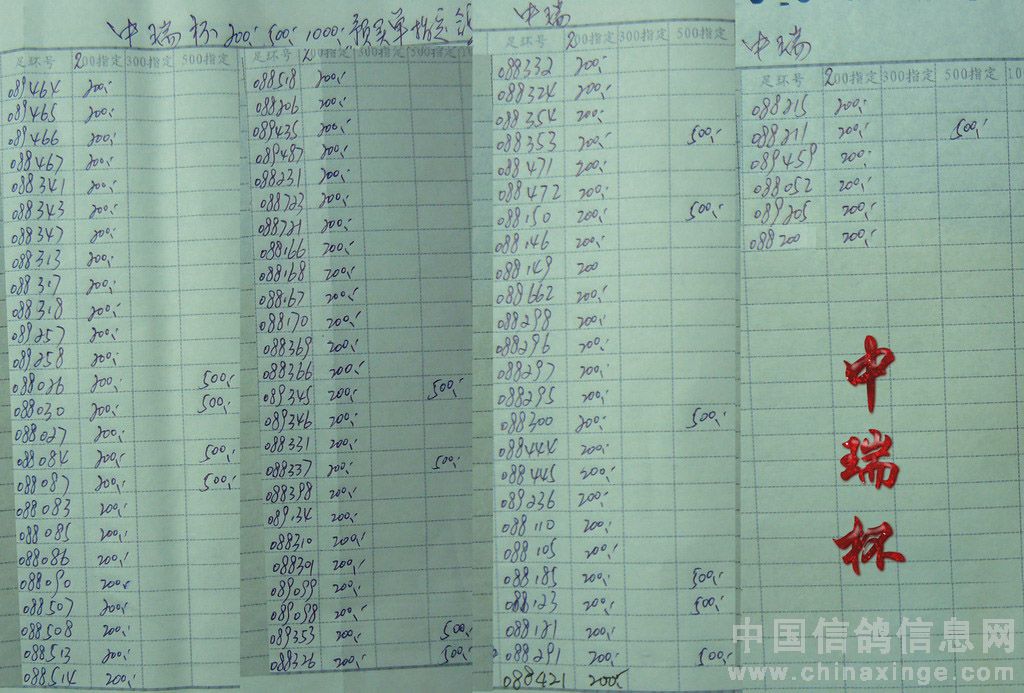 中瑞杯 200、500、1000、预买单指定
足环号 200指定 300指定 500指定
089464 200、
089465 200、
089466 200、
088467 200、
088341 200、
088343 200、
088347 200、
088313 200、
088317 200、
088318 200、
089257 200、
089258 200、
088026 200、 500、
088030 200、 500、
088027 200、
088084 200、 500、
088087 200、 500、
088083 200、
088085 200、
088086 200、
088090 200、
088507 200、
088508 200、
088513 200、
088514 200、
足环号 200指定 300指定 500指定
088518 200、
088206 200、
089435 200、
089487 200、
088231 200、
088723 200、
088721 200、
088166 200、
088168 200、
088167 200、
088170 200、
088369 200、
088366 200、
089345 200、 500、
089346 200、
088331 200、
088337 200、 500、
088398 200、
089134 200、
088310 200、
088301 200、
089099 200、
089098 200、
089353 200、 500、
088326 200、 500、
中瑞
足环号 200指定 300指定 500指定
088332 200、
088324 200、
088354 200、
088353 200、 500、
088471 200、
088472 200、
088150 200、 500、
088146 200、
088149 200
088662 200、
088298 200、
088296 200、
088297 200、
088295 200、
088300 200、 500、
088444 200、
088445 200、
089236 200、
088110 200、
088105 200、
088185 200、 500、
088123 200、 500、
088181 200、
088291 200、 500、
088421 200、
中瑞
足环号 200指定 300指定 500指定 10
088215 200、
088211 200、 500、
089459 200、
088052 200、
089205 200、
088200 200、
中
瑞
杯
中国信鸽信息网
www.chinaxinge.com